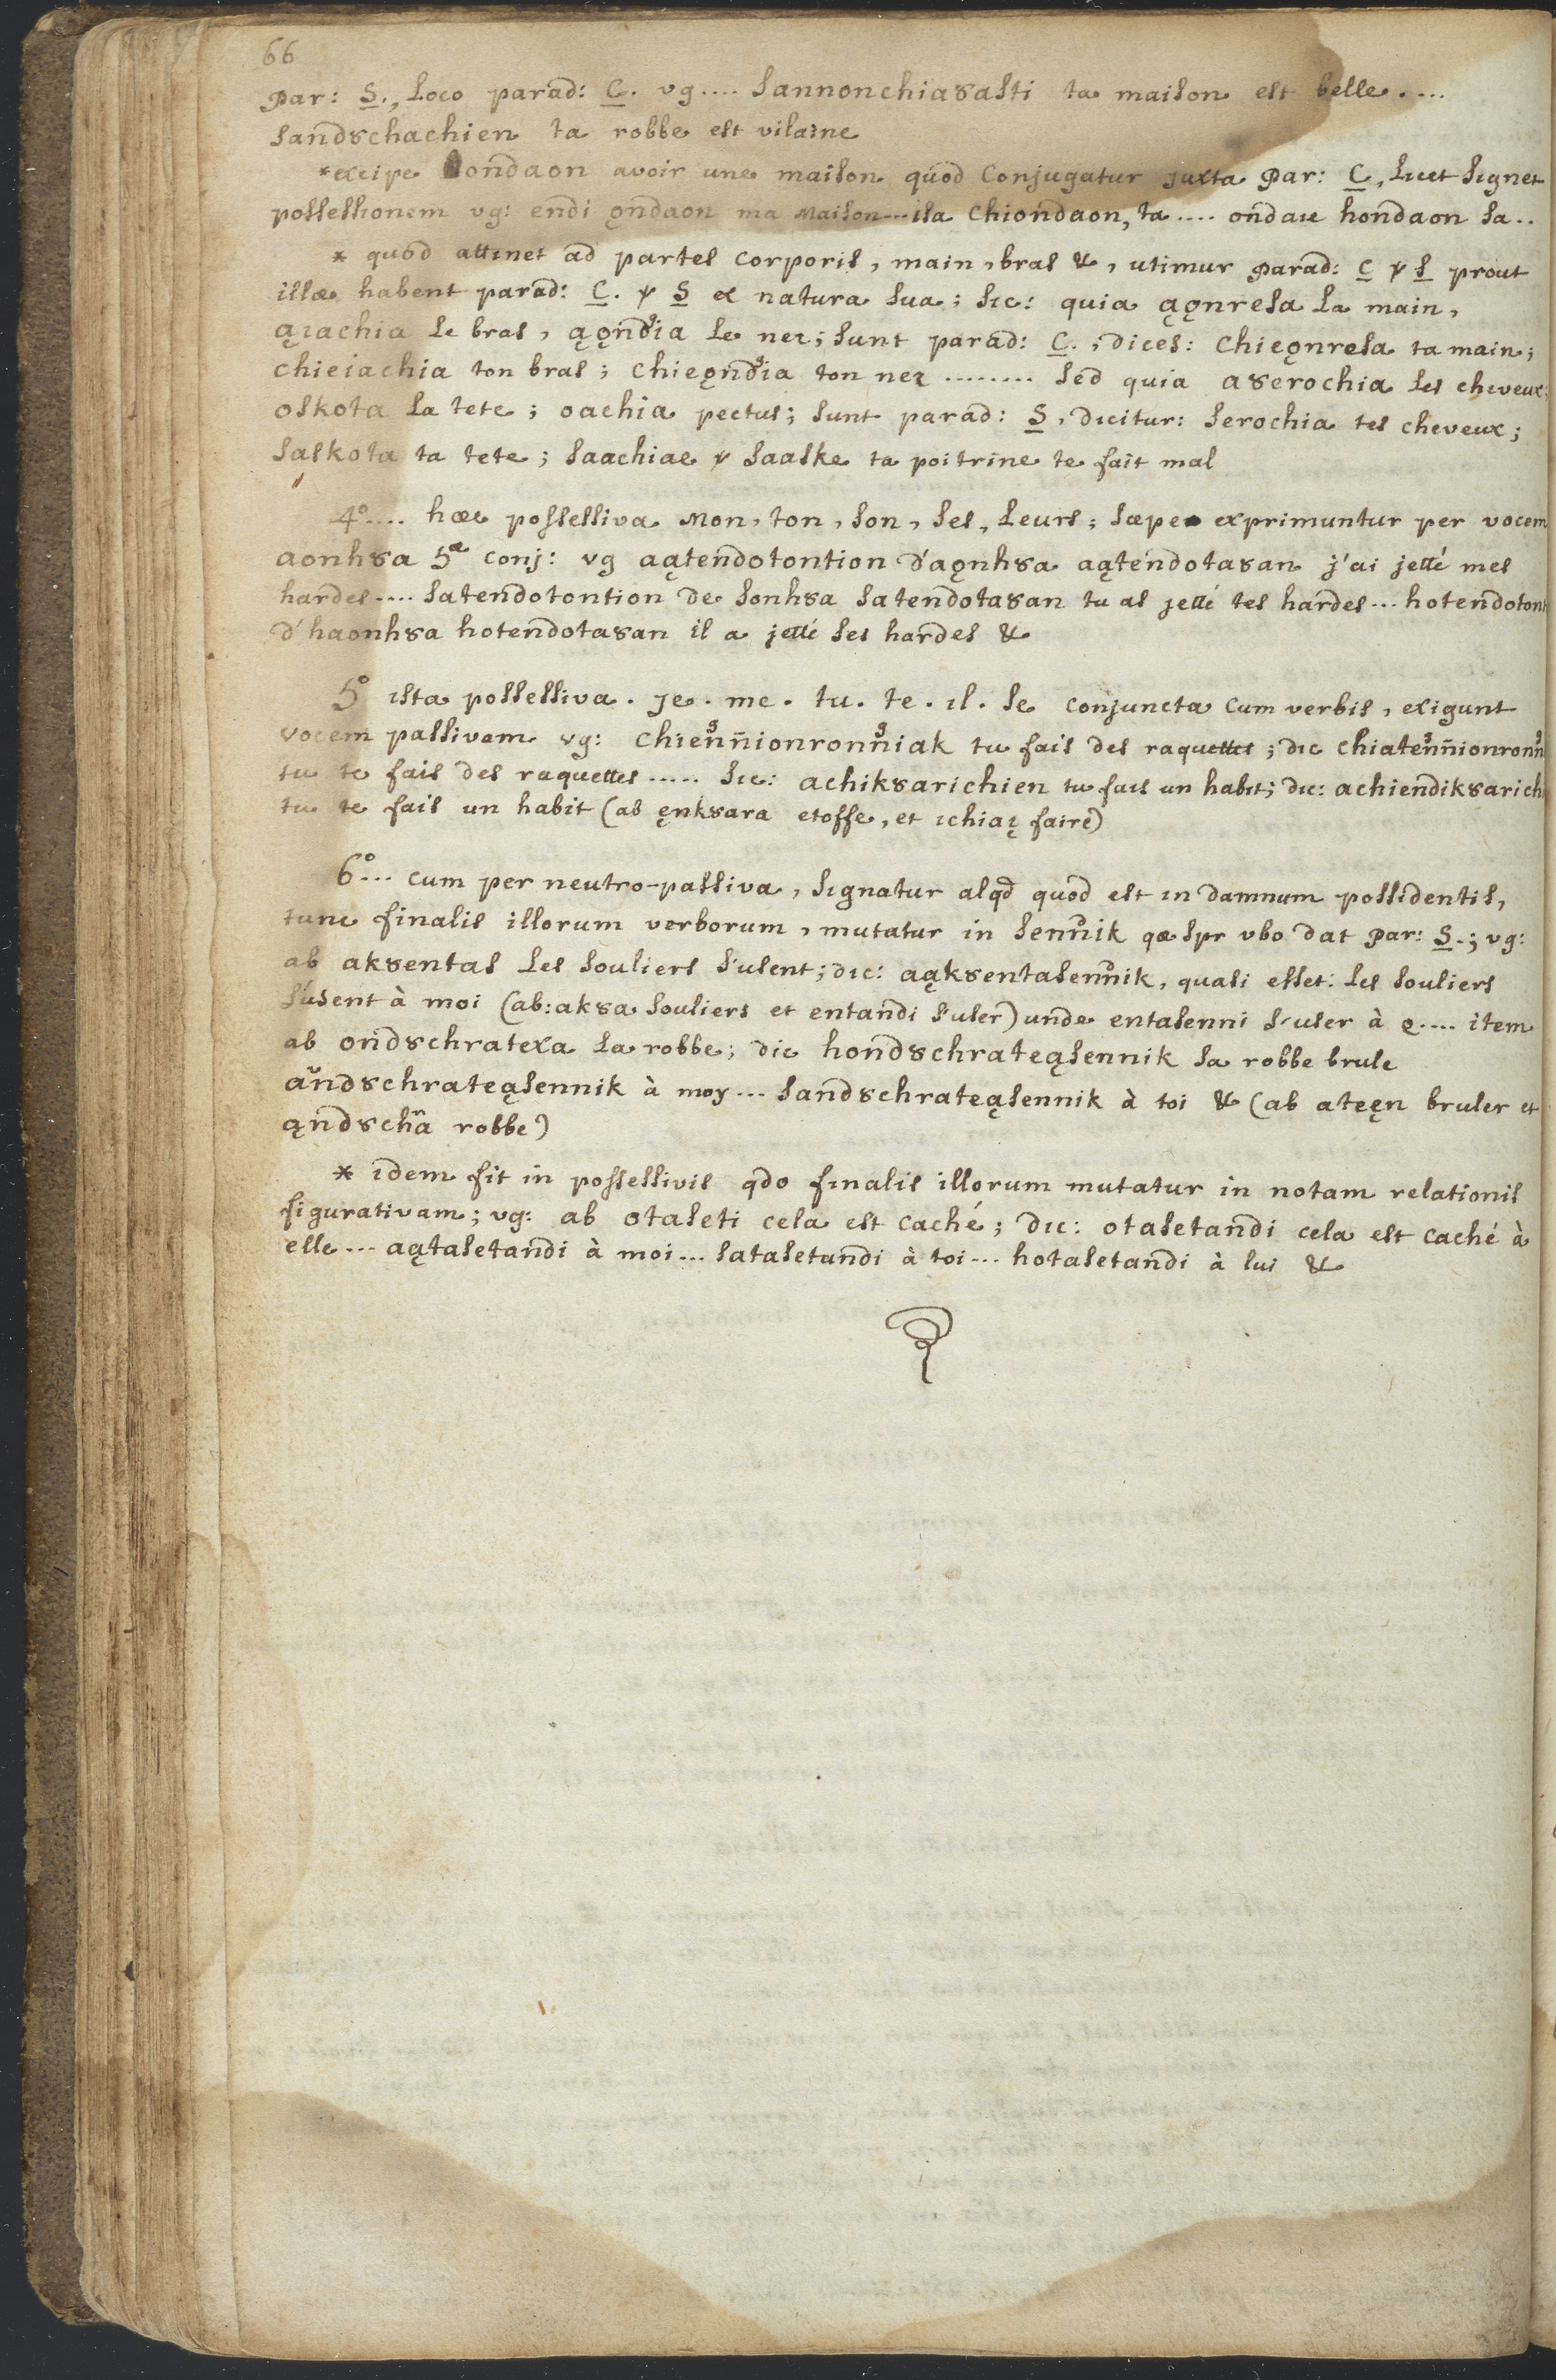 66
par: S., loco parad: C. vg.... sannonchia8asti ta maison est belle....
sand8chachien ta robbe est vilaine
*excipe ondaon avoir une maison quod conjugatur juxta par: C, licet signet
possessionem vg: endi ǫndaon ma maison... isa chiondaon, ta.... ondaie hondaon sa..
* quod attinet ad partes corporis, main, bras &, utimur parad: C ꝟ S prout
illæ habent parad: C. ꝟ S ex natura sua; sic: quia ąǫnresa la main,
ąiachia le bras, ąǫnd8ia le nez; sunt parad: C., dices: chieǫnresa ta main;
chieiachia ton bras; chieǫnd8ia ton nez ........ sed quia a8erochia les cheveux,
oskota la tete; oachia pectus; sunt parad: S, dicitur: serochia tes cheveux;
saskota ta tete; saachiae ꝟ saaske ta poitrine te fait mal
4°.... hæc possessiva mon, ton, son, ses, leurs; sæpe exprimuntur per vocem
aonh8a 5æ conj: vg aątendotontion d'aǫnh8a aątendota8an j'ai jetté mes
hardes.... satendotontion de sonh8a satendota8an tu as jetté tes hardes... hotendotont
d'haonh8a hotendota8an il a jetté ses hardes &
5° ista possessiva. je. me. tu. te. il. se conjuncta cum verbis, exigunt
vocem passivam vg: chien8nionron8niak tu fais des raquettes; dic chiaten8nionron8n
tu te fais des raquettes ..... sic: achik8arichien tu fais un habit; dic: achiendik8arich
tu te fais un habit (ab ęnk8ara etoffe, et ichiaį faire)
6°... cum per neutro-passiva, signatur alqd quod est in damnum possidentis,
tunc finalis illorum verborum, mutatur in sennik qæ spr vbo dat par: S.; vg:
ab ak8entas les souliers s'usent; dic: aąk8entasennik, quasi esset: les souliers
s'usent à moi (ab: ak8a souliers et entandi s'user) unde entasenni s'user à q.... item
ab ond8chratexa la robbe; dic hond8chrateąsennik sa robbe brule
and8chrateąsennik à moy... sand8chrateąsennik à toi & (ab ateęn bruler et
ąnd8chra robbe)
* idem fit in possessivis qdo finalis illorum mutatur in notam relationis
figurativam; vg: ab otaseti cela est caché; dic: otasetandi cela est caché à
elle... aątasetandi à moi... satasetandi à toi... hotasetandi à lui &